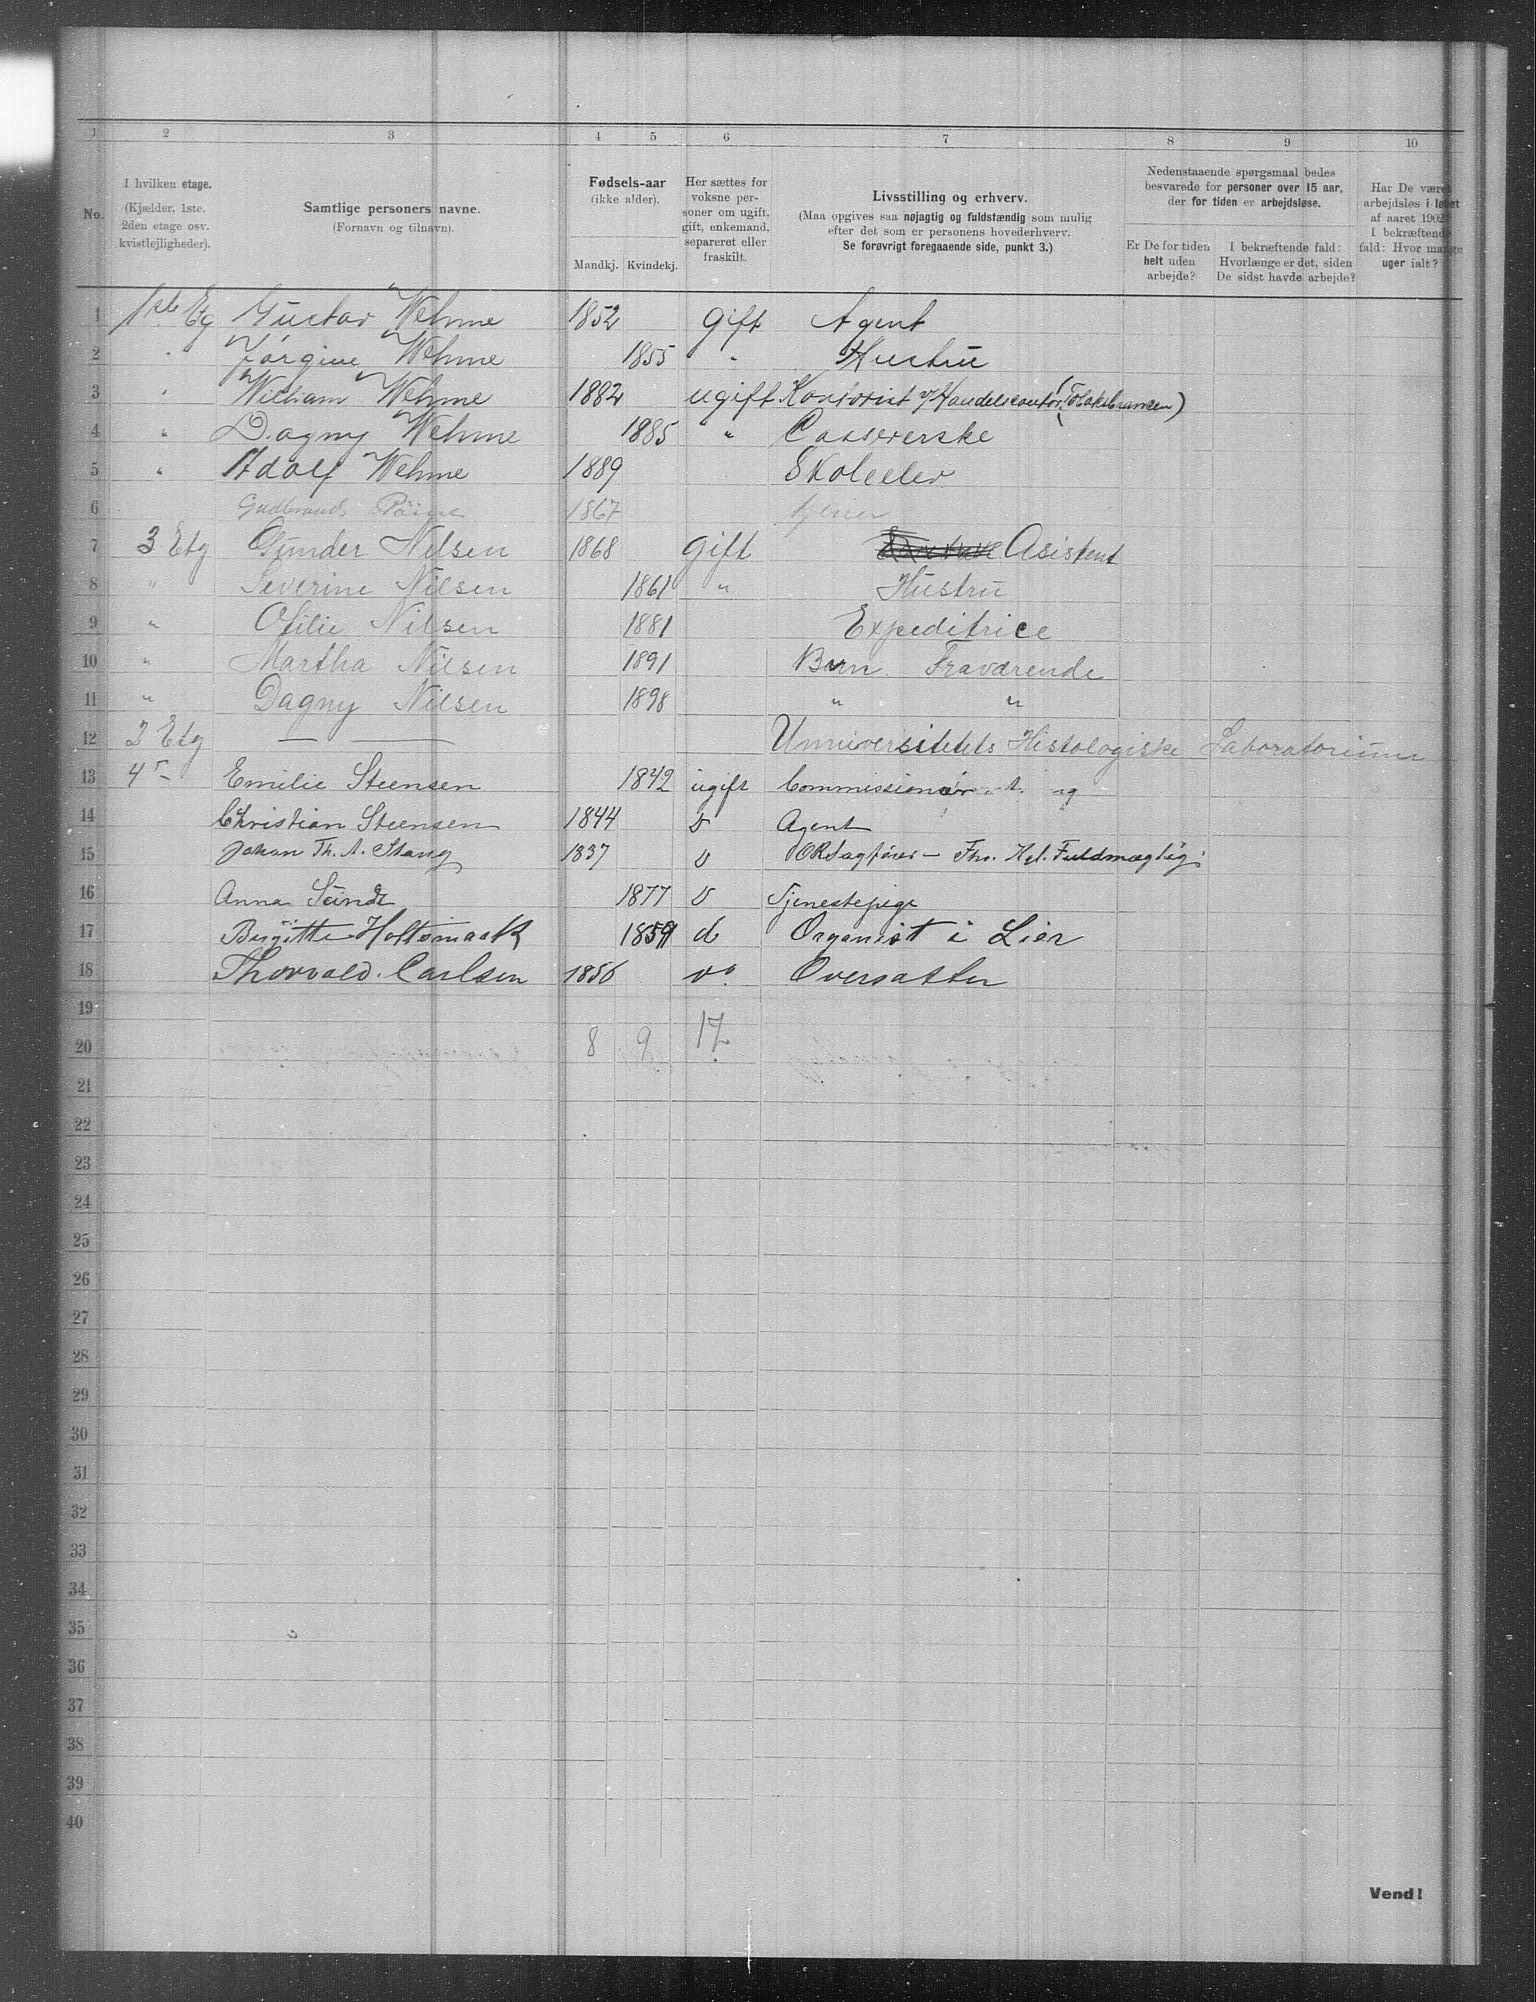 1 2 3 4 5 6 7 8 9 10
No.
I hvilken etage.
(Kjælder, 1ste.
2den etage osv.
kvistlejligheder).
Samtlige personers navne.
(Fornavn og tilnavn).
Fødsels-aar
(ikke alder).
Mandkj. Kvindekj.
Her sættes for
voksne per-
soner om ugift,
gift, enkemand,
separeret eller
fraskilt.
Livsstilling og erhverv.
(Maa opgives saa nøjagtig og fuldstændig som mulig
efter det som er personens hovederhverv.
Se forøvrigt foregaaende side, punkt 3.)
Nedenstaaende spørgsmaal bedes
besvarede for personer over 15 aar,
der for tiden er arbejdsløse.
Er De for tiden
helt uden
arbejde?
I bekræftende fald:
Hvorlænge er det, siden
De sidst havde arbejde?
Har De været
arbejdsløs i løbet
af aaret 1902?
I bekræftende
fald: Hvor mange
uger ialt?
1 1ste Etg Gustav Wehme 1852 gift Agent
2 " Jørgine Wehme 1855 " Hustru
3 " William Wehme 1882 ugift Kontorist v/ Handelscontor
4 " Dagny Wehme 1885 " Cassererske
5 " Adolf Wehme 1889 Skoleelev
6 Gudbrand 1867
7 3 Etg Gunder Nilsen 1868 Gift Asistent
8 " Severine Nilsen 1861 " Hustru
9 " Otilie Nilsen 1881 Expeditrice
10 " Martha Nilsen 1891 Barn Fraværende
11 " Dagny Nilsen 1898 " "
12 2 Etg — — Universitetets Histologiske Laboratorium
13 4 Emilie Steensen 1842 ugift Commissionær
14 Christian Steensen 1844 Agent
15 Johan Th. A. Stang 1837 ORSagfører – Fuldmægtig
16 Anna Sunde 1877 Tjenestepige
17 Birgitte Holtsmark 1859 d Organist i Lier
18 Thorvald Carlsen 1856 Oversætter
19
20 8 9 17
21
22
23
24
25
26
27
28
29
30
31
32
33
34
35
36
37
38
39
40
Vend!